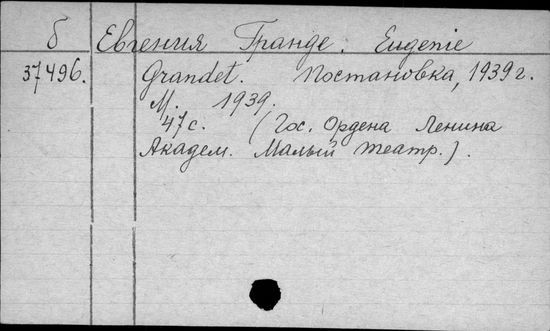 б Евгения Гранде. Eugenie
37496. Grandet. Постановка, 1939 г.
М. 1939.
47 с. (Гос. Ордена Ленина
Академ. Малый театр.).